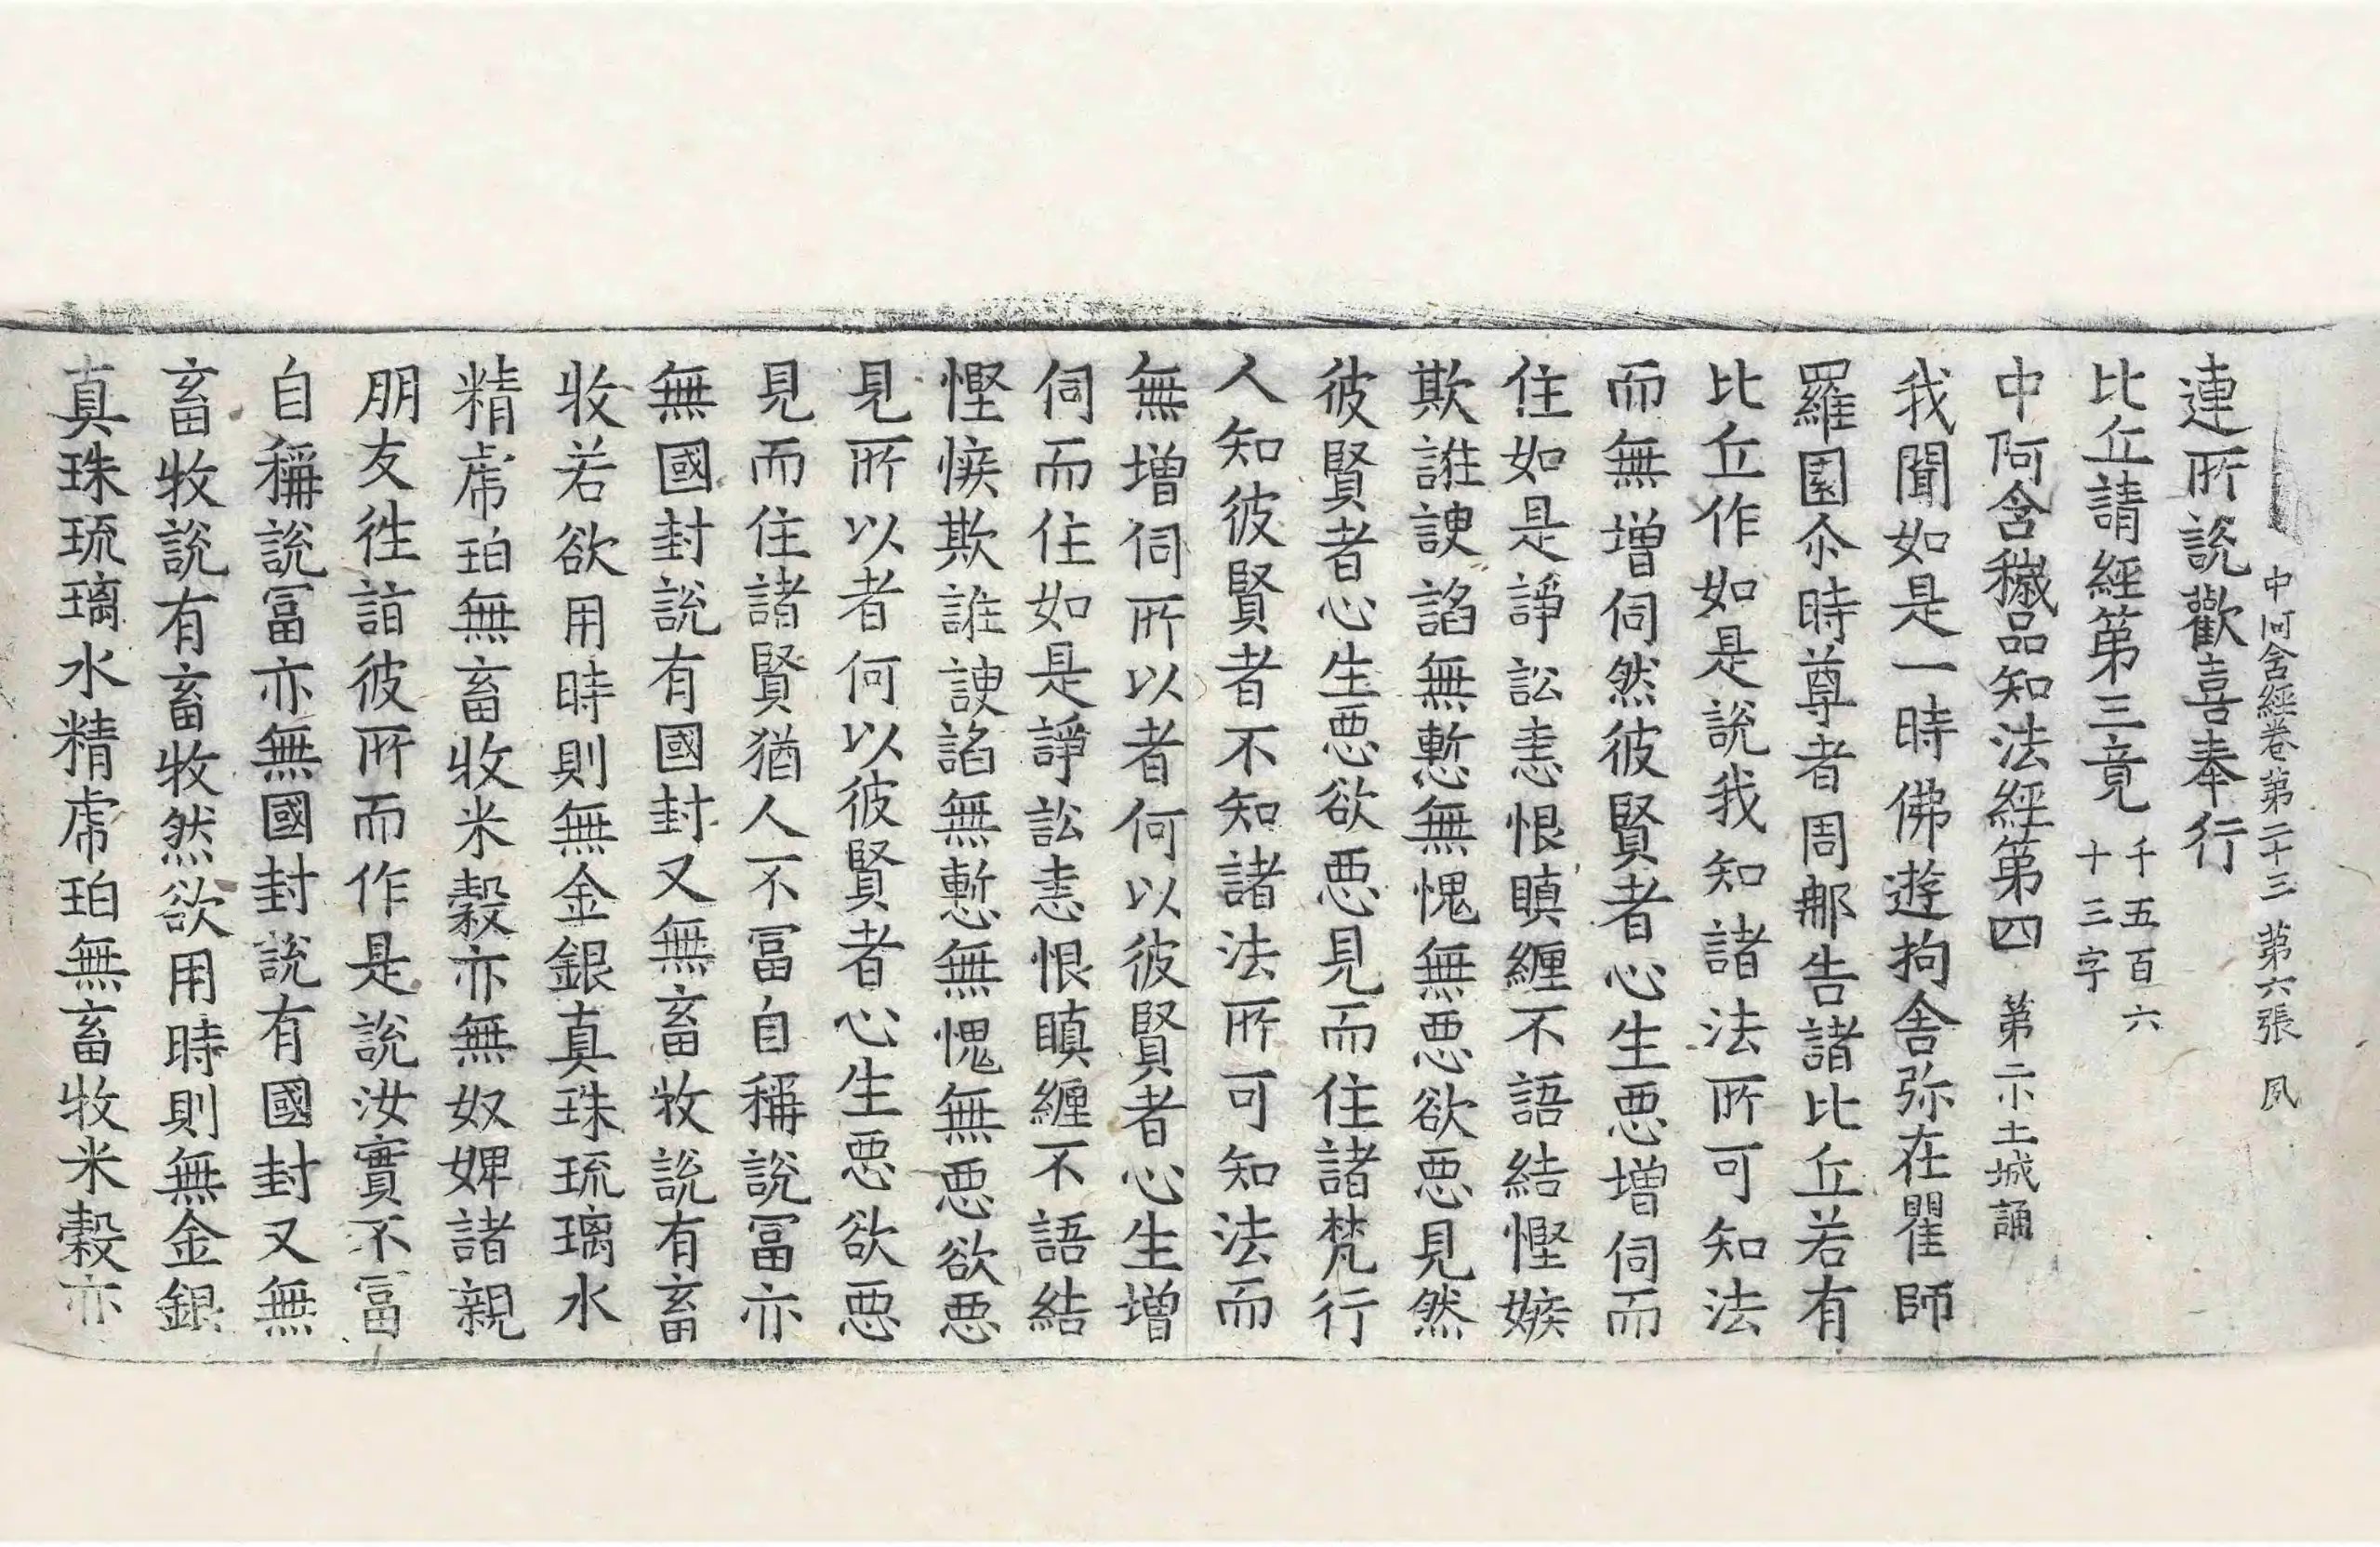 中阿含經卷第二十三 第六張 夙
連所說歡喜奉行
比丘請經第三竟 千五百六十三字
中阿含穢品知法經第四 第二小土城誦
我聞如是一時佛遊拘舍弥在瞿師
羅園尒時尊者周那告諸比丘若有
比丘作如是說我知諸法所可知法
而無增伺然彼賢者心生悪增伺而
住如是諍訟恚恨瞋纏不語結慳嫉
欺誑諛諂無慙無愧無悪欲悪見然
彼賢者心生悪欲悪見而住諸梵行
人知彼賢者不知諸法所可知法而
無增伺所以者何以彼賢者心生增
伺而住如是諍訟恚恨瞋纏不語結
慳㑵欺誑諛諂無慙無愧無悪欲悪
見所以者何以彼賢者心生悪欲悪
見而住諸賢猶人不冨自稱說冨亦
無國封說有國封又無畜牧說有畜
牧若欲用時則無金銀真珠琉璃水
精虎珀無畜牧米糓亦無奴婢諸親
朋友徃詣彼所而作是說汝實不冨
自稱說冨亦無國封說有國封又無
畜牧說有畜牧然欲用時則無金銀
真珠琉璃水精虎珀無畜牧米糓亦